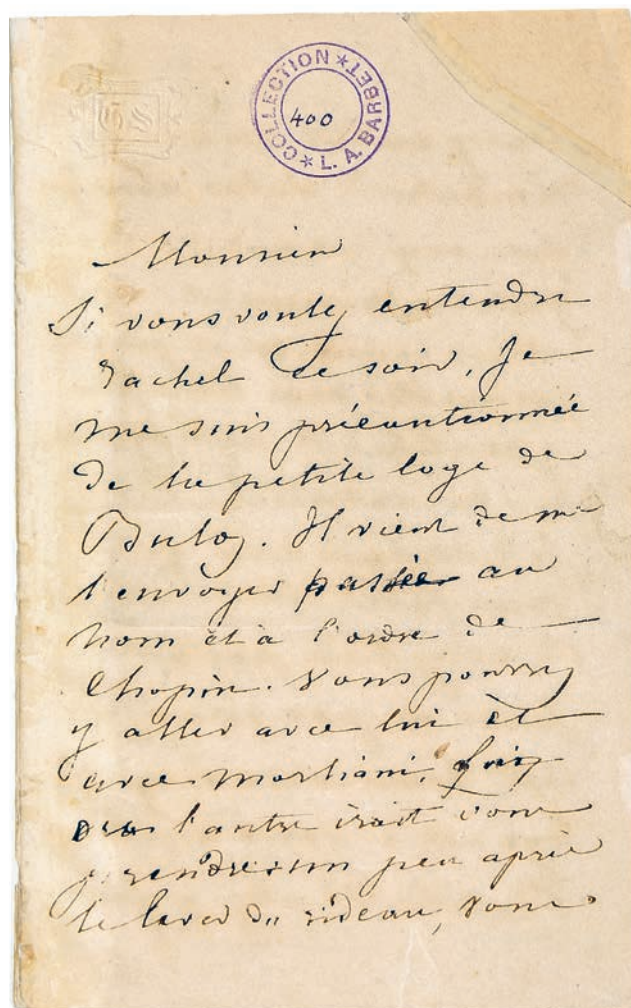 COLLECTION ★ L. A. BARBET ★
400
GS
Monsieur
Si vous voulez entendre
Rachel ce soir, je
me suis précautionnée
de la petite loge de
Buloz. Il vient de me
l'envoyer passée au
nom et à l'ordre de
Chopin. Vous pourrez
y aller avec lui et
avec Marliani.
l'autre irait vous
prendre un peu après
le lever du rideau, vous